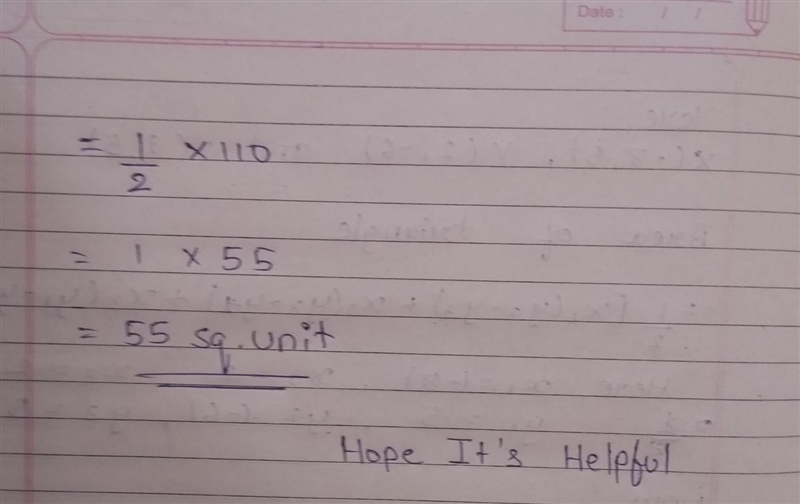 Date : / /
= 1/2 × 110
= 1 × 55
= 55 sq. unit
Hope It's Helpful